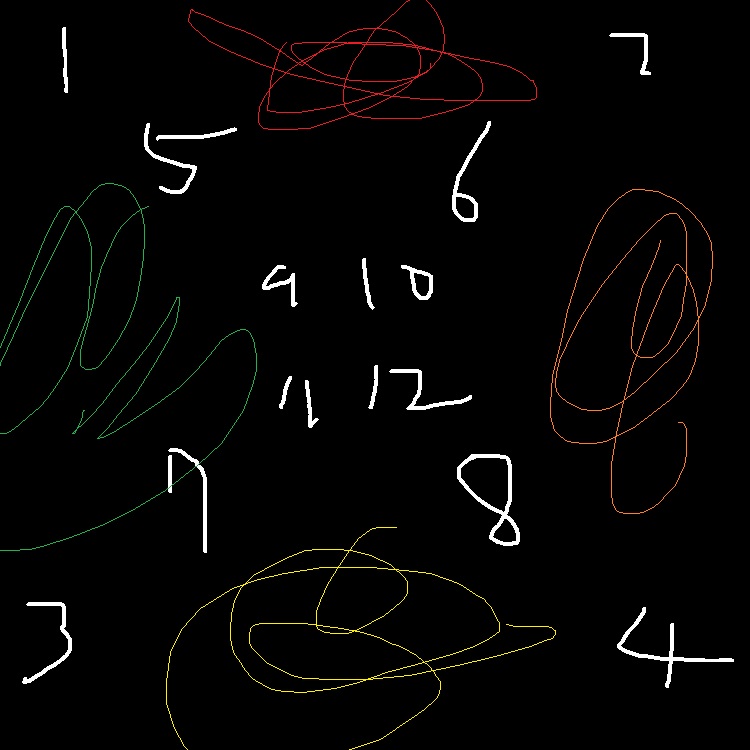 1 2
5 6
9 10
11 12
7 8
3 4